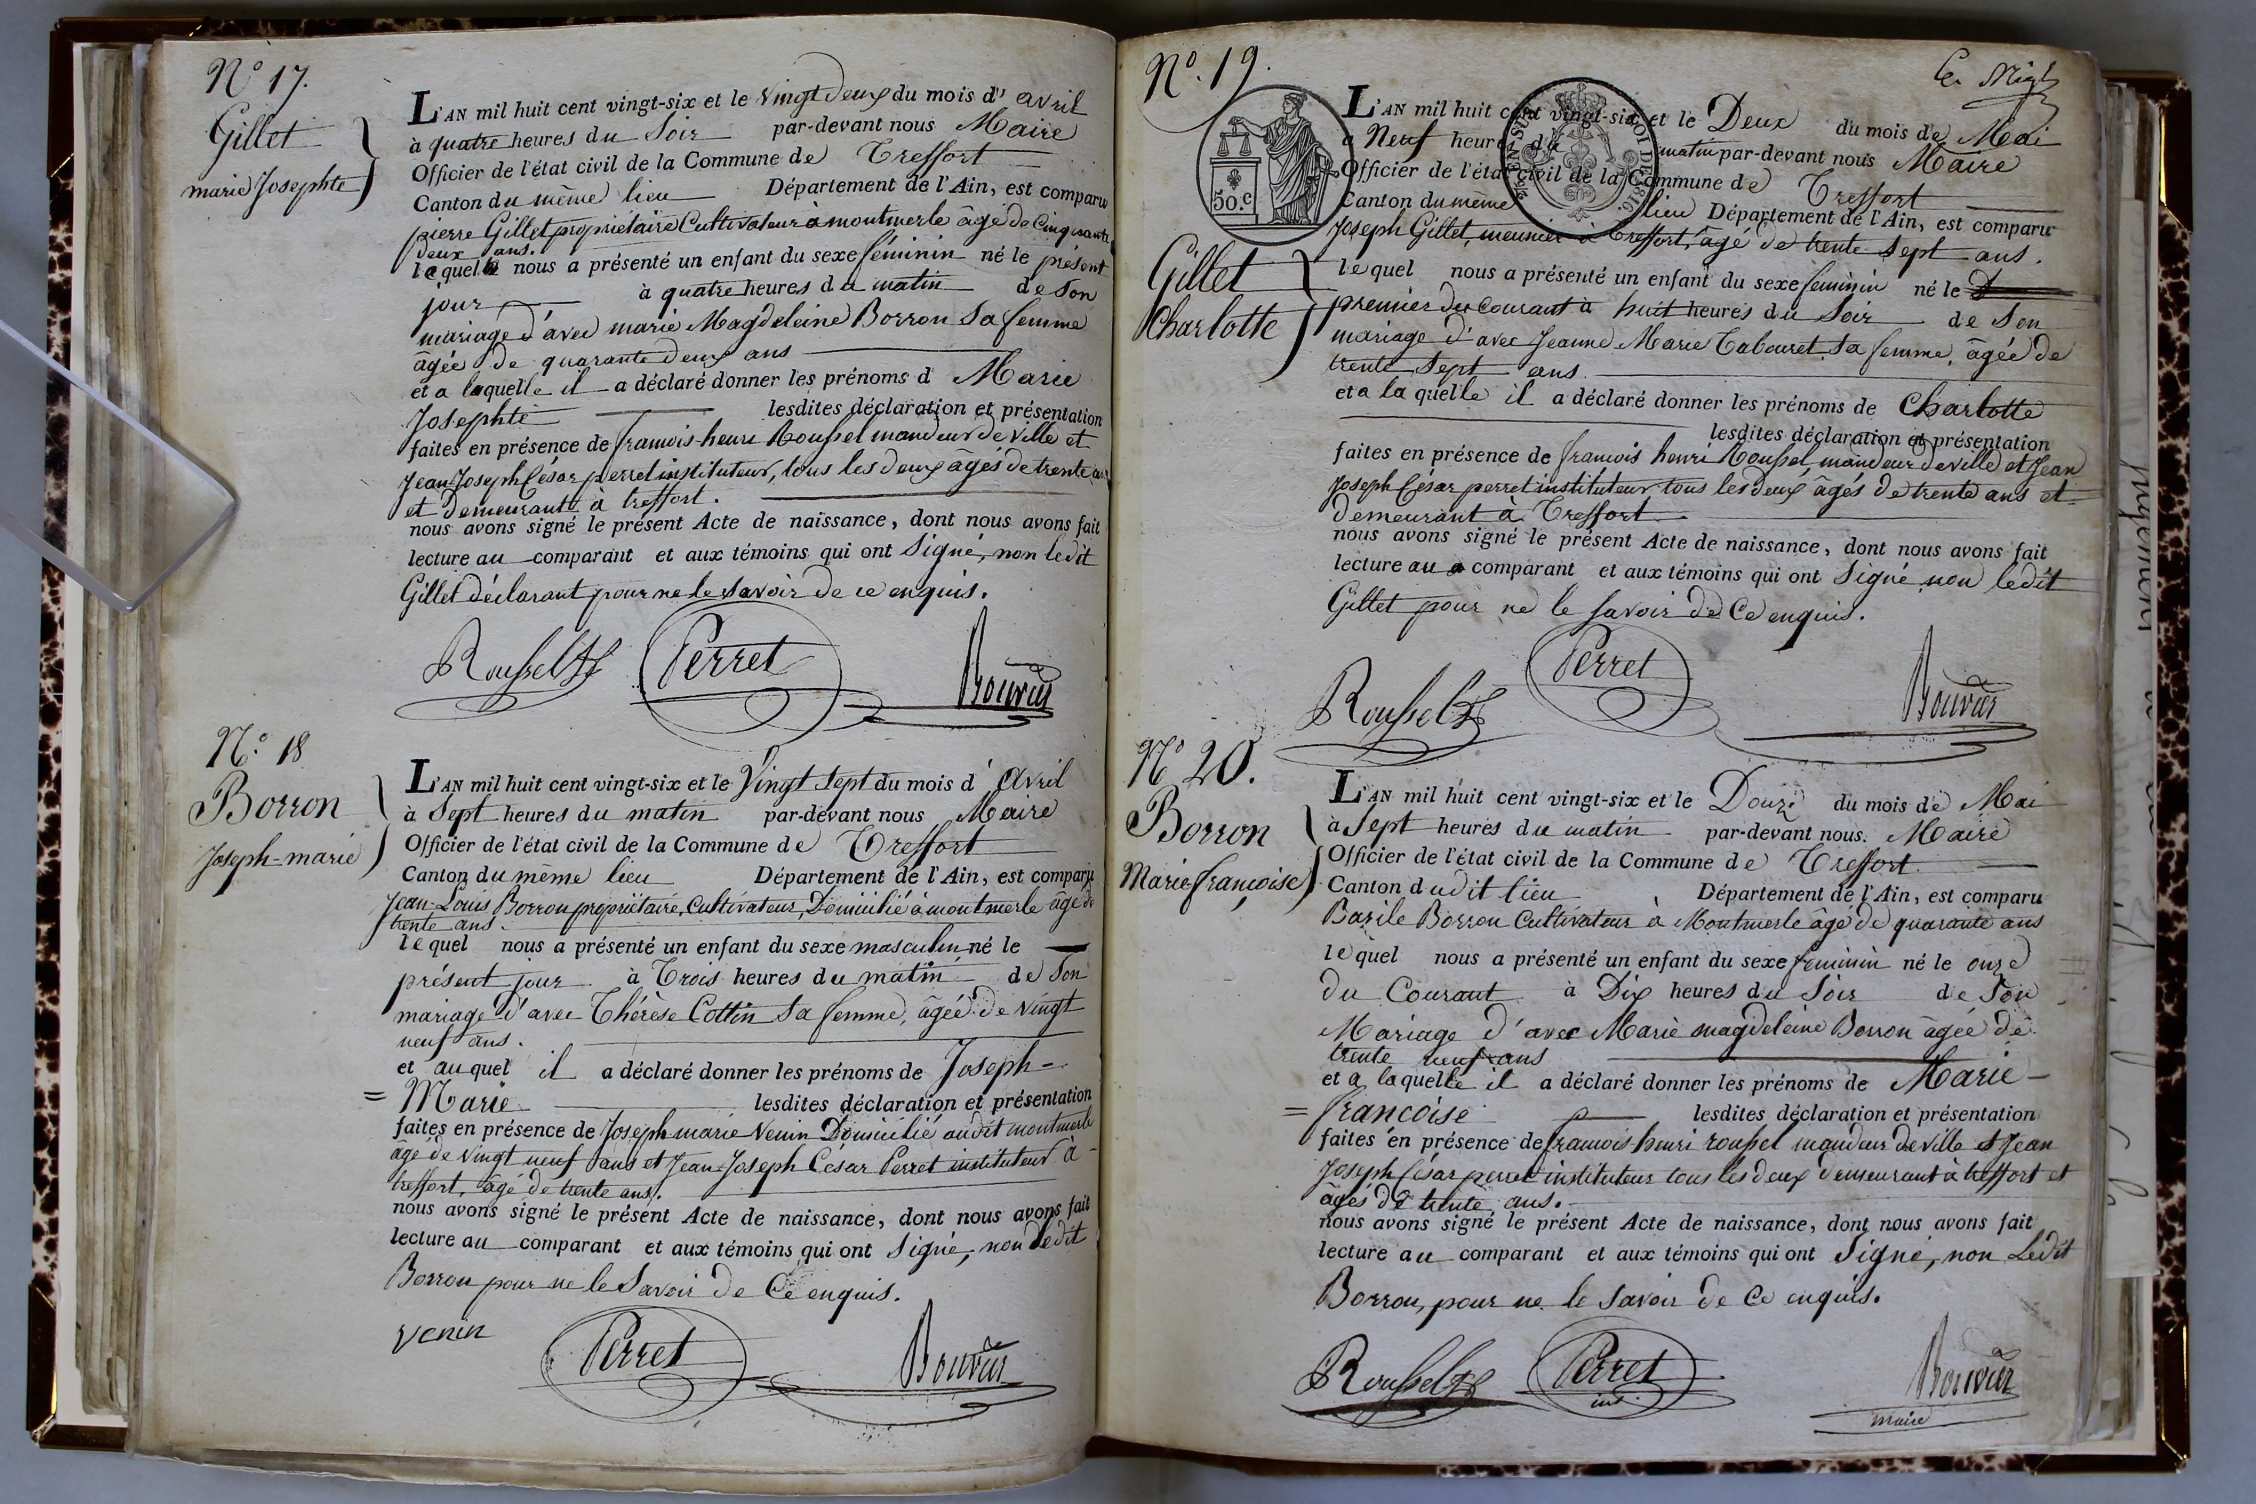 N° 17.
Gillet
marie Josephte
L'AN mil huit cent vingt-six et le vingt deux du mois d' avril
à quatre heures du Soir par-devant nous Maire
Officier de l'état civil de la Commune de Treffort
Canton du même lieu Département de l'Ain, est comparu
pierre Gillet propriétaire Cultivateur à montmerle âgé de Cinquante
deux ans.
lequel nous a présenté un enfant du sexe féminin né le présent
jour à quatre heures du matin de Son
mariage d'avec marie Magdeleine Borron Sa femme
âgée de quarante deux ans
et a laquelle il a déclaré donner les prénoms d Marie
Josephte lesdites déclaration et présentation
faites en présence de francois henri Roussel mandeur de ville et
Jean Joseph César perret instituteur, tous les deux âgés de trente ans
et demeurant à treffort.
nous avons signé le présent Acte de naissance, dont nous avons fait
lecture au comparant et aux témoins qui ont Signé, non ledit
Gillet déclarant pour ne le savoir de ce enquis.
Roussel Perret Bouvier
N° 18
Borron
Joseph-marie
L'AN mil huit cent vingt-six et le Vingt Sept du mois d' Avril
à Sept heures du matin par-devant nous Maire
Officier de l'état civil de la Commune de Treffort
Canton du même lieu Département de l'Ain, est comparu
Jean-Louis Borron propriétaire, Cultivateur, Domicilié à montmerle âgé de
trente ans.
lequel nous a présenté un enfant du sexe masculin né le
présent jour à Trois heures du matin de Son
mariage d'avec Thérèse Cottin Sa femme, âgée de vingt
neuf ans.
et auquel il a déclaré donner les prénoms de Joseph-
= Marie lesdites déclaration et présentation
faites en présence de Joseph marie Venin Domicilié audit montmerle
âgé de vingt neuf ans et Jean-Joseph César Perret instituteur à
treffort, âgé de trente ans.
nous avons signé le présent Acte de naissance, dont nous avons fait
lecture au comparant et aux témoins qui ont Signé, non ledit
Borron pour ne le Savoir de Ce enquis.
venin Perret Bouvier
N° 19.
50.c
Gillet
Charlotte
L'AN mil huit cent vingt-six et le Deux du mois de Mai
a Neuf heures du matin par-devant nous Maire
Officier de l'état civil de la Commune de Treffort
Canton du même lieu Département de l'Ain, est comparu
Joseph Gillet, meunier à Treffort, âgé de trente Sept ans.
lequel nous a présenté un enfant du sexe feminin né le
premier du courant à huit heures du Soir de Son
mariage d'avec Jeanne Marie Tabouret Sa femme, âgée de
trente Sept ans.
et a la quelle il a déclaré donner les prénoms de Charlotte
lesdites déclaration et présentation
faites en présence de francois henri Roussel mandeur de ville et Jean
Joseph César perret instituteur tous les deux âgés de trente ans et
demeurant à Treffort
nous avons signé le présent Acte de naissance, dont nous avons fait
lecture au comparant et aux témoins qui ont Signé non ledit
Gillet pour ne le Savoir de Ce enquis.
Roussel Perret Bouvier
N° 20.
Borron
Marie françoise
L'AN mil huit cent vingt-six et le Douze du mois de Mai
à Sept heures du matin par-devant nous. Maire
Officier de l'état civil de la Commune de Treffort
Canton dudit lieu Département de l'Ain, est comparu
Bazile Borron Cultivateur à Montmerle âgé de quarante ans
lequel nous a présenté un enfant du sexe feminin né le onze
du Courant à Dix heures du Soir de Son
Mariage d'avec Marie magdeleine Borron âgée de
trente neuf ans
et a laquelle il a déclaré donner les prénoms de Marie-
= francoise lesdites déclaration et présentation
faites en présence de francois henri roussel mandeur de ville et Jean
Joseph César perret instituteur tous les deux demeurant à treffort et
âgés de trente ans.
nous avons signé le présent Acte de naissance, dont nous avons fait
lecture au comparant et aux témoins qui ont Signé, non Ledit
Borron, pour ne le Savoir de Ce enquis.
Roussel Perret Bouvier
maire